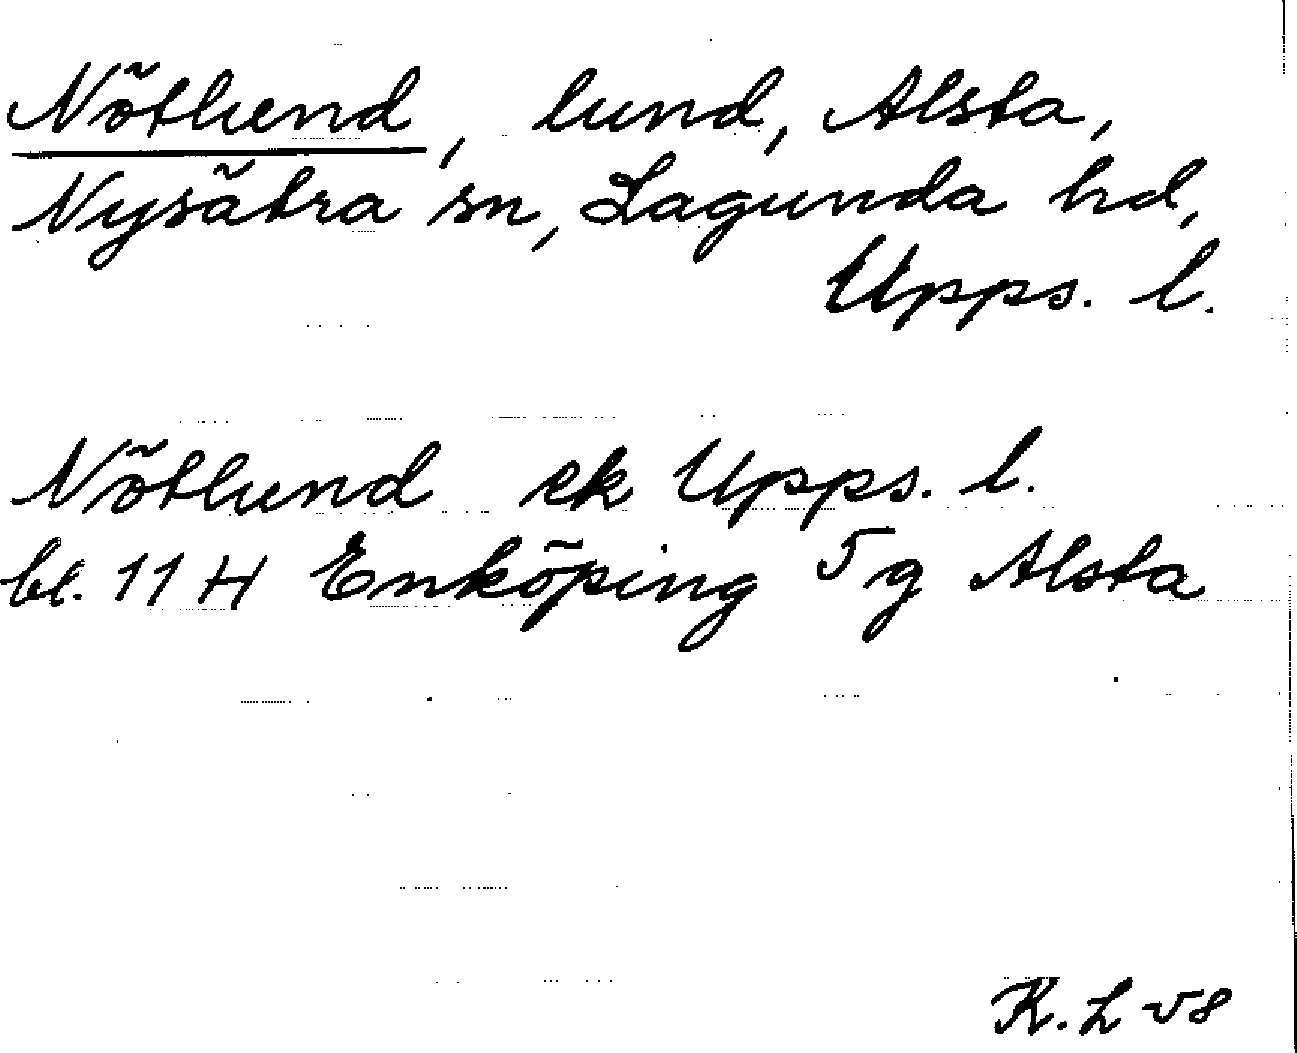 Nötlund, lund, Alsta,
Nysätra sn, Lagunda hd,
Upps. l.
Nötlund ek Upps. l.
bl. 11 H Enköping 5 g Alsta
K. L -58